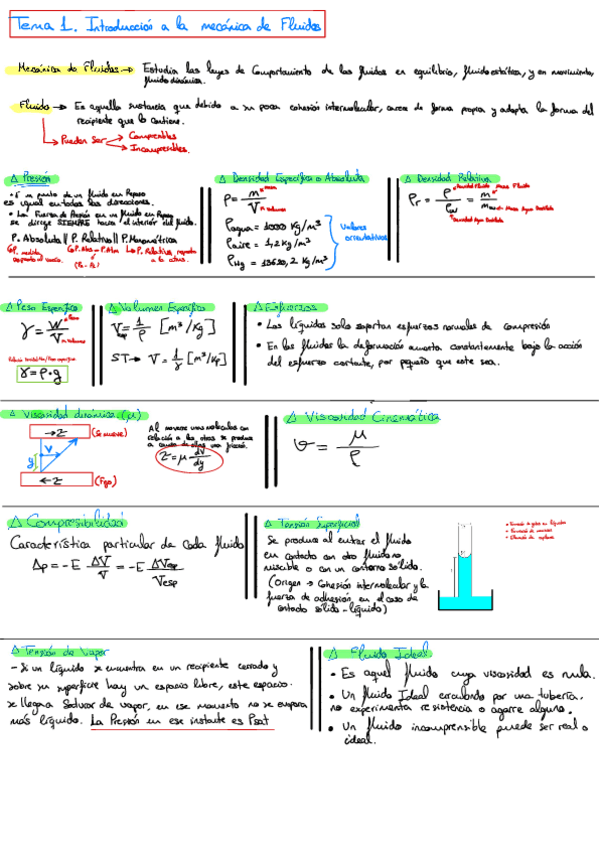 Tema 1. Introducción a la mecánica de Fluidos
Mecánica de Fluidos → Estudia las leyes de Comportamiento de los fluidos en equilibrio, fluidoestática, y en movimiento,
fluidodinámica.
Fluido → Es aquella sustancia que debido a su poca cohesión intermolecular, carece de forma propia y adopta la forma del
recipiente que lo contiene.
→ Pueden Ser → Compresibles
→ Incompresibles.
Δ Presión
• En un punto de un fluido en Reposo
es igual en todas las direcciones.
• La Fuerza de Presión en un fluido en Reposo
se dirige SIEMPRE hacia el interior del fluido.
P. Absoluta || P. Relativa || P. Manométrica
Δ Densidad Específica o Absoluta
ρ = m / V
masa
volumen
ρagua = 1000 Kg/m³
ρaire = 1,2 Kg/m³
ρHg = 13620,2 Kg/m³
Valores
orientativos
Δ Densidad Relativa
ρr = ρ / ρw = m / m
Densidad Fluido Masa Fluido
Masa Agua Destilada
Densidad Agua Destilada
Δ Peso Específico
γ = W / V
Peso
Volumen
γ = ρ · g
Δ Volumen Específico
V = 1/ρ [m³/Kg]
ST → V = 1/γ [m³/Kp]
Δ Esfuerzos
• Los líquidos solo soportan esfuerzos normales de compresión
• En los fluidos la deformación aumenta constantemente bajo la acción
del esfuerzo cortante, por pequeño que este sea.
Δ Viscosidad dinámica (μ)
→ τ (Se mueve)
V
y
← τ (Fijo)
Al moverse unas moléculas con
relación a las otras se produce
a causa de ellas una fricción.
τ = μ · dV/dy
Δ Viscosidad Cinemática
υ = μ / ρ
Δ Compresibilidad
Característica particular de Cada fluido
Δp = -E ΔV/V = -E ΔVesp/Vesp
Δ Tensión Superficial
Se produce al entrar el fluido
en contacto con otro fluido no
miscible o con un contorno sólido.
(Origen → Cohesión intermolecular y la
fuerza de adhesión, en el caso de
contacto sólido-líquido)
Δ Tensión de Vapor
- Si un líquido se encuentra en un recipiente cerrado y
sobre su superficie hay un espacio libre, este espacio
se llegará Saturar de vapor, en ese momento no se evapora
más líquido. La Presión en ese instante es Psat
Δ Fluido Ideal
• Es aquel fluido cuya viscosidad es nula.
• Un fluido Ideal circulando por una tubería.
no experimenta resistencia o agarre alguno.
• Un fluido incomprensible puede ser real o
ideal.